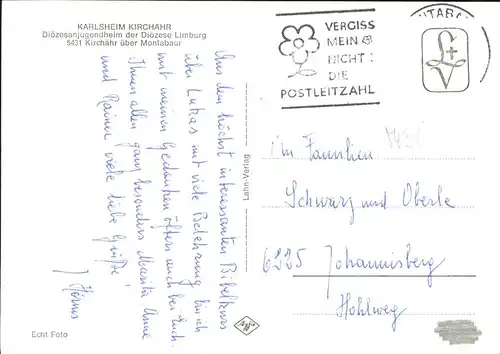 KARLSHEIM KIRCHÄHR
Diözesanjugendheim der Diözese Limburg
5431 Kirchähr über Montabaur
Aus dem höchst interessanten Bibelkurs
über Lukas mit viel Belehrung bin ich
mit meinen Gedanken öfters auch bei Euch.
Ihnen allen ganz besonders Marita Anne
und Rainer viele liebe Grüße!
Echt Foto
Lahn-Verlag
VERGISS
MEIN
NICHT:
DIE
POSTLEITZAHL
LV
Familien
Schwarz und Oberle
6225 Johannisberg
Hohlweg